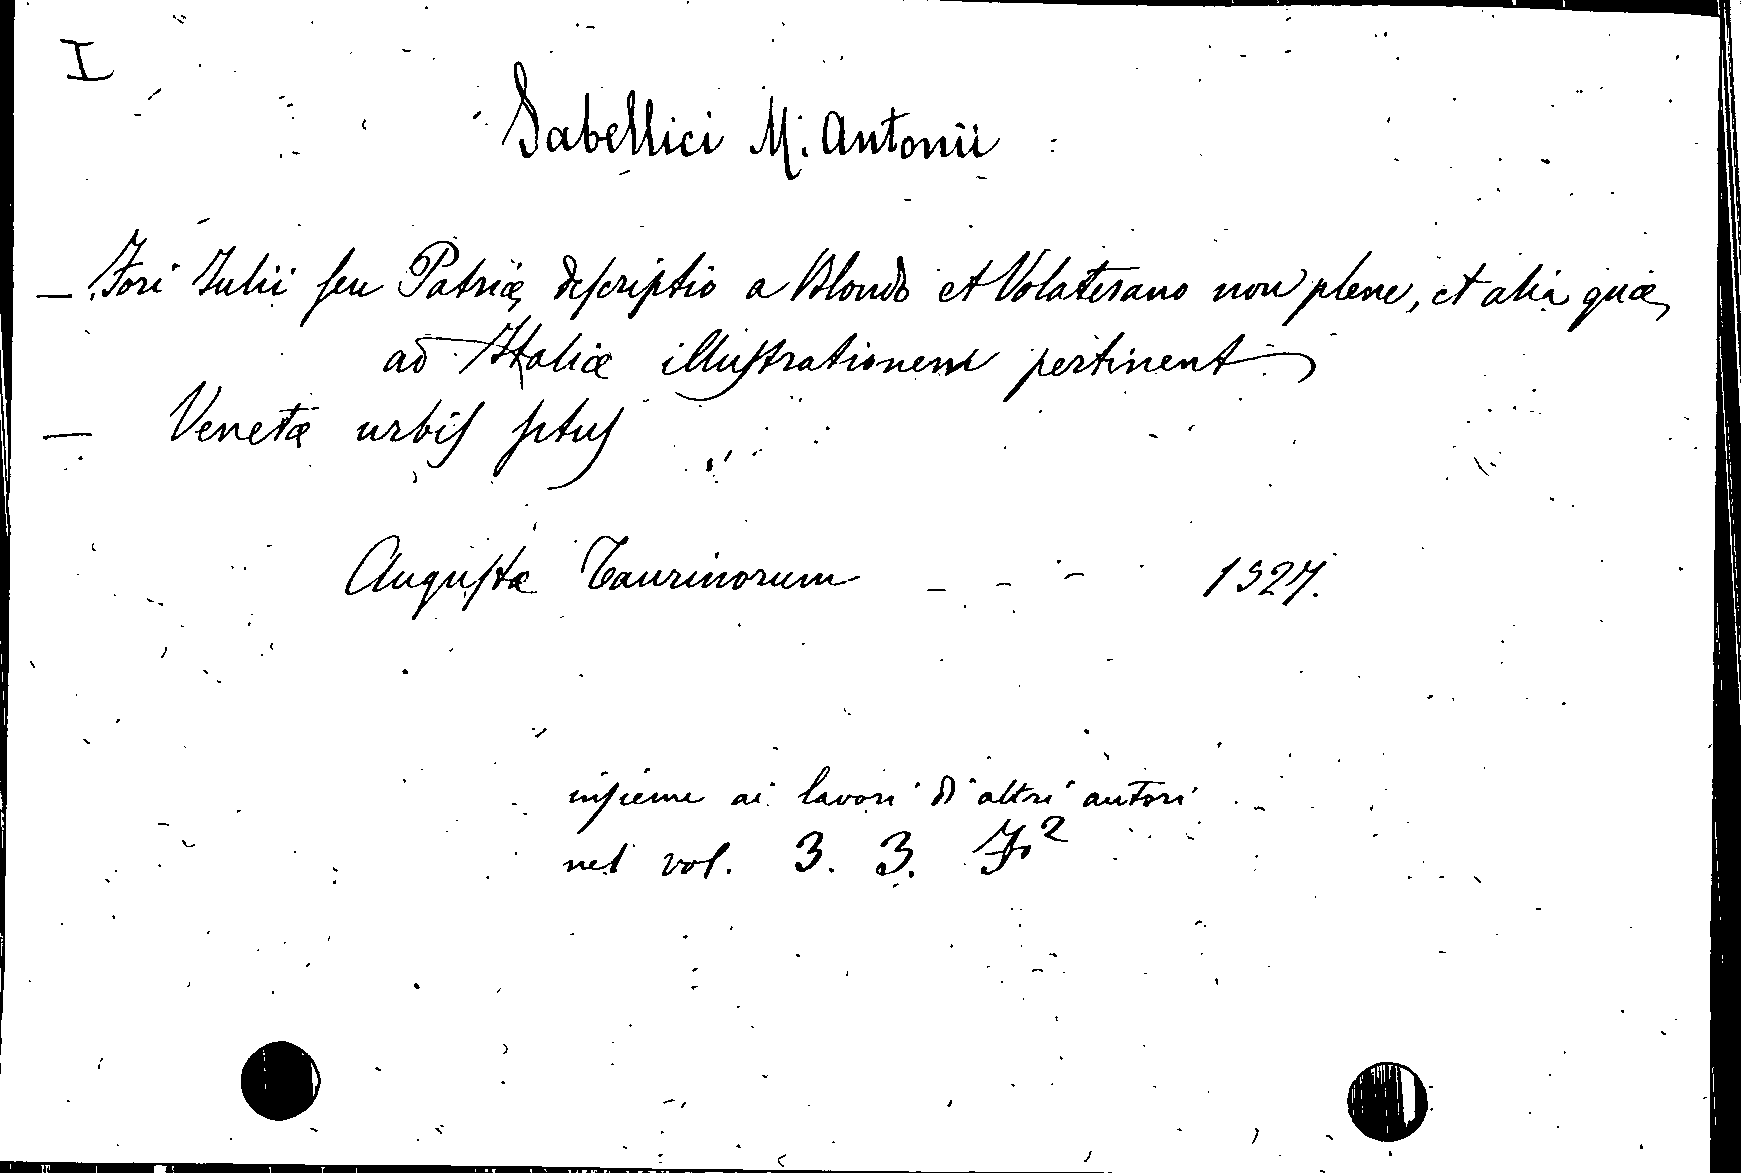 I
Sabellici M. Antonii
— Fori Iulii ſeu Patriæ deſcriptio a Blondo et Volaterano non plene, et alia quæ
ad Italiæ illuſtrationem pertinent
— Venetæ urbiſ ſituſ
Auguſtæ Taurinorum - - - 1527.
inſieme ai lavori di altri autori
nel vol. 3. 3. F²